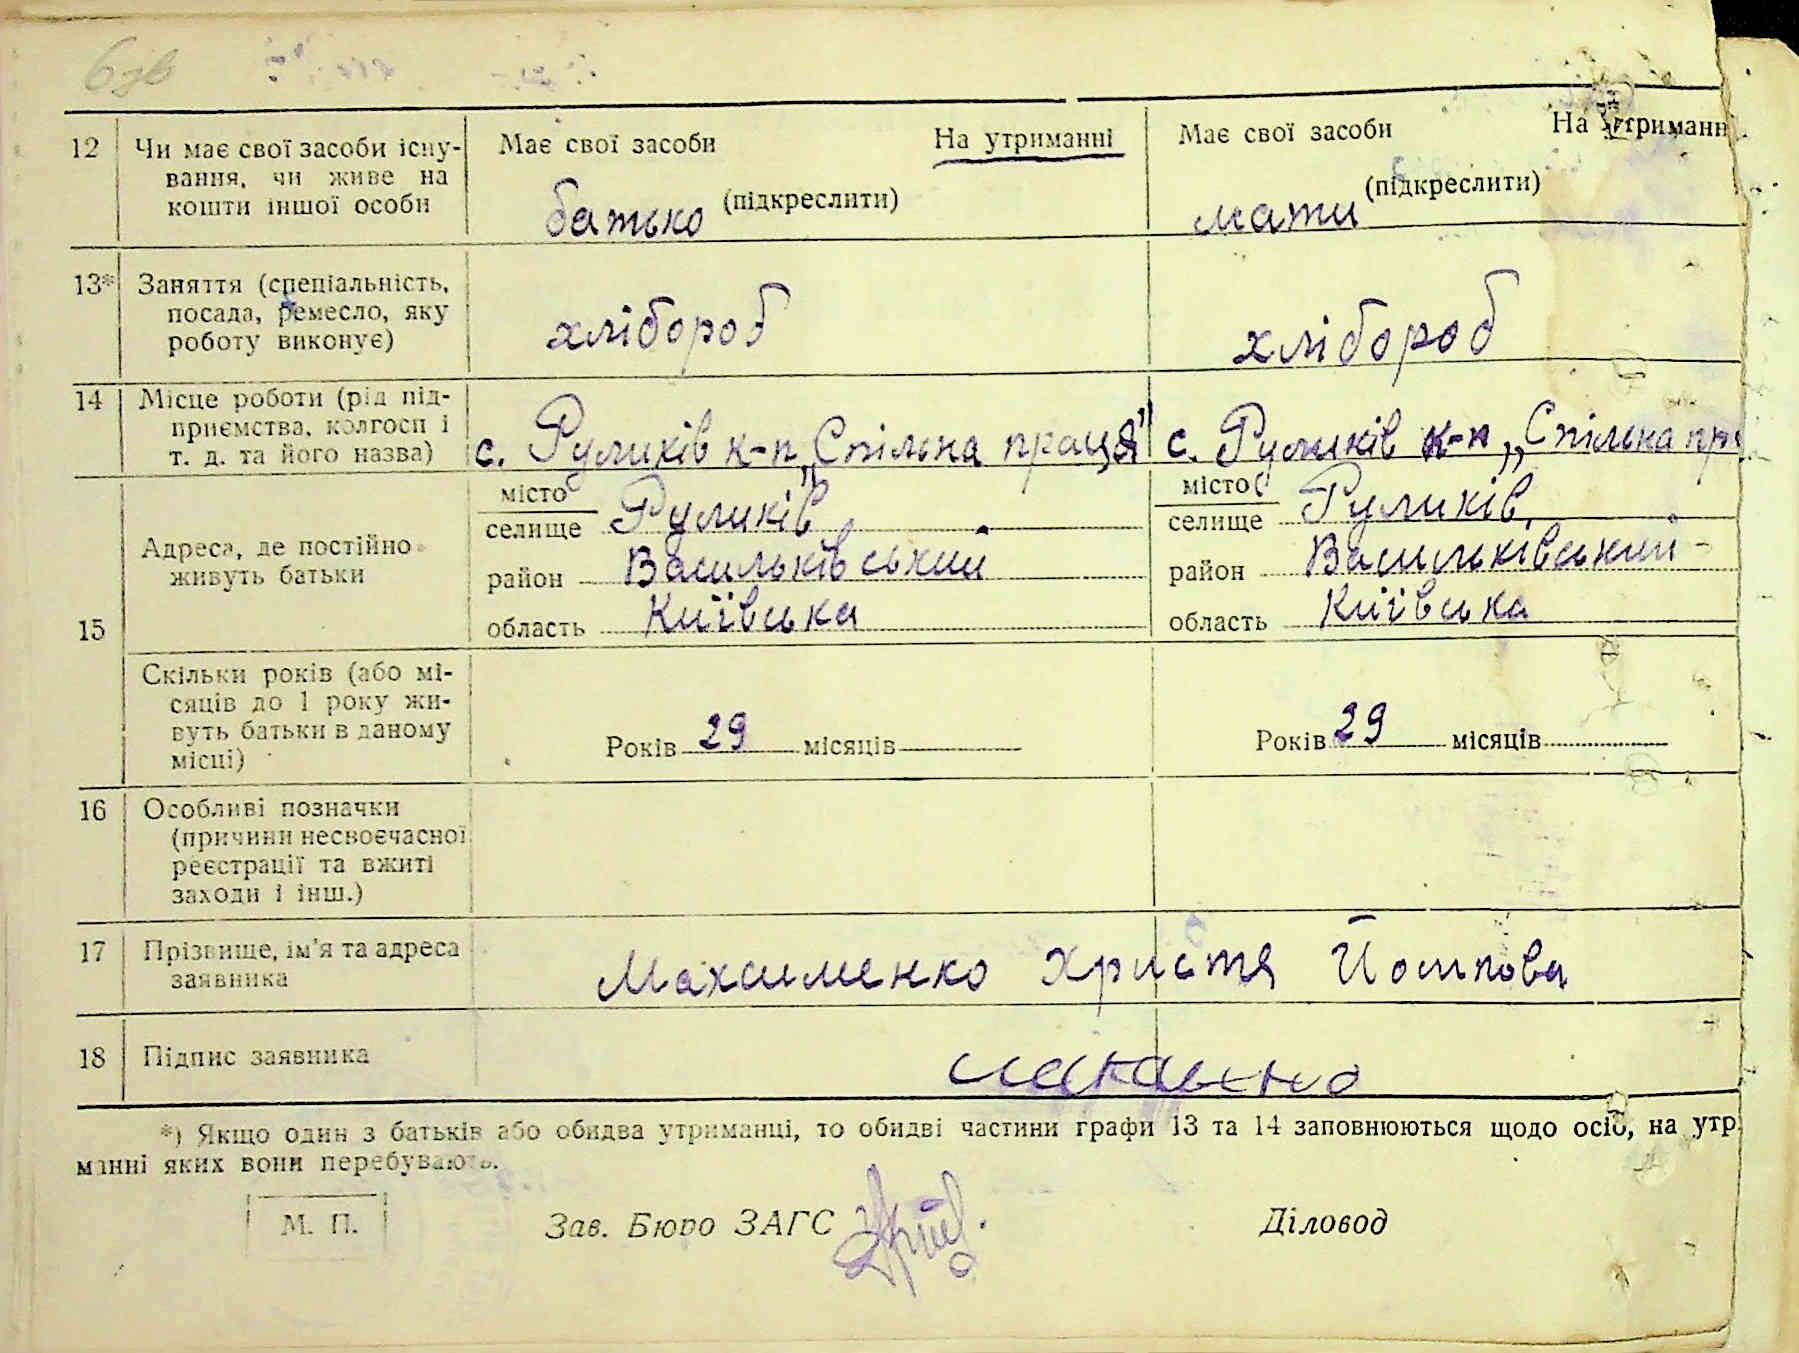 6зв
12 Чи має свої засоби існу- Має свої засоби На утриманні Має свої засоби На утриманн
вання, чи живе на (підкреслити) (підкреслити)
кошти іншої особи батько мати
13* Заняття (спеціальність,
посада, ремесло, яку хлібороб хлібороб
роботу виконує)
14 Місце роботи (рід під-
приємства, колгосп і
т. д. та його назва) с. Руликів к-п „Спільна праця" с. Руликів к-п „Спільна пра
місто Руликів місто Руликів
селище селище
Адреса, де постійно
живуть батьки район Васильківський район Васильківський
15 область Київська область Київська
Скільки років (або мі-
сяців до 1 року жи-
вуть батьки в даному
місці) Років 29 місяців Років 29 місяців
16 Особливі позначки
(причини несвоєчасної
реєстрації та вжиті
заходи і інш.)
17 Прізвище, ім'я та адреса
заявника Максименко Христя Йосипова
18 Підпис заявника
*) Якщо один з батьків або обидва утриманці, то обидві частини графи 13 та 14 заповнюються щодо осіб, на утр
манні яких вони перебувають.
М. П. Зав. Бюро ЗАГС Діловод